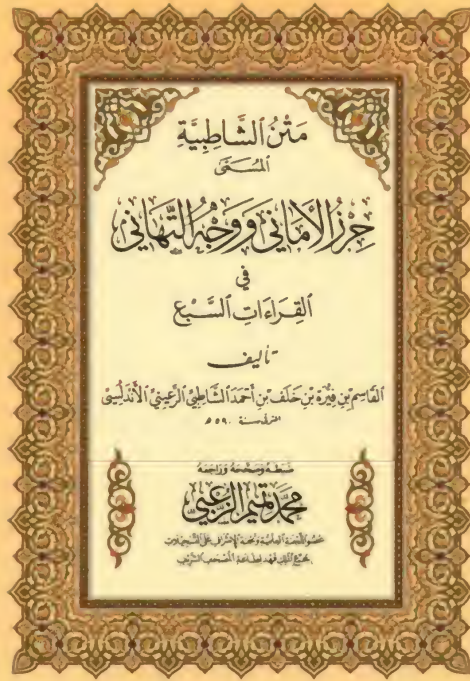 مَتْنُ ٱلشَّاطِبِيَّةِ
ٱلْمُسَمَّى
حِرْزُ ٱلْأَمَانِي وَوَجْهُ ٱلتَّهَانِي
فِي
ٱلْقِرَاءَاتِ ٱلسَّبْعِ
تأليف
ٱلْقَاسِمِ بْنِ فِيرُّهْ بْنِ خَلَفِ بْنِ أَحْمَدَ ٱلشَّاطِبِيِّ ٱلرُّعَيْنِيِّ ٱلْأَنْدَلُسِيِّ
المتوفى سنة ٥٩٠ هـ
ضبطه وصححه وراجعه
محمد تميم الزعبي
عضو اللجنة العلمية ولجنة الإشراف على التسجيلات
بمجمع الملك فهد لطباعة المصحف الشريف